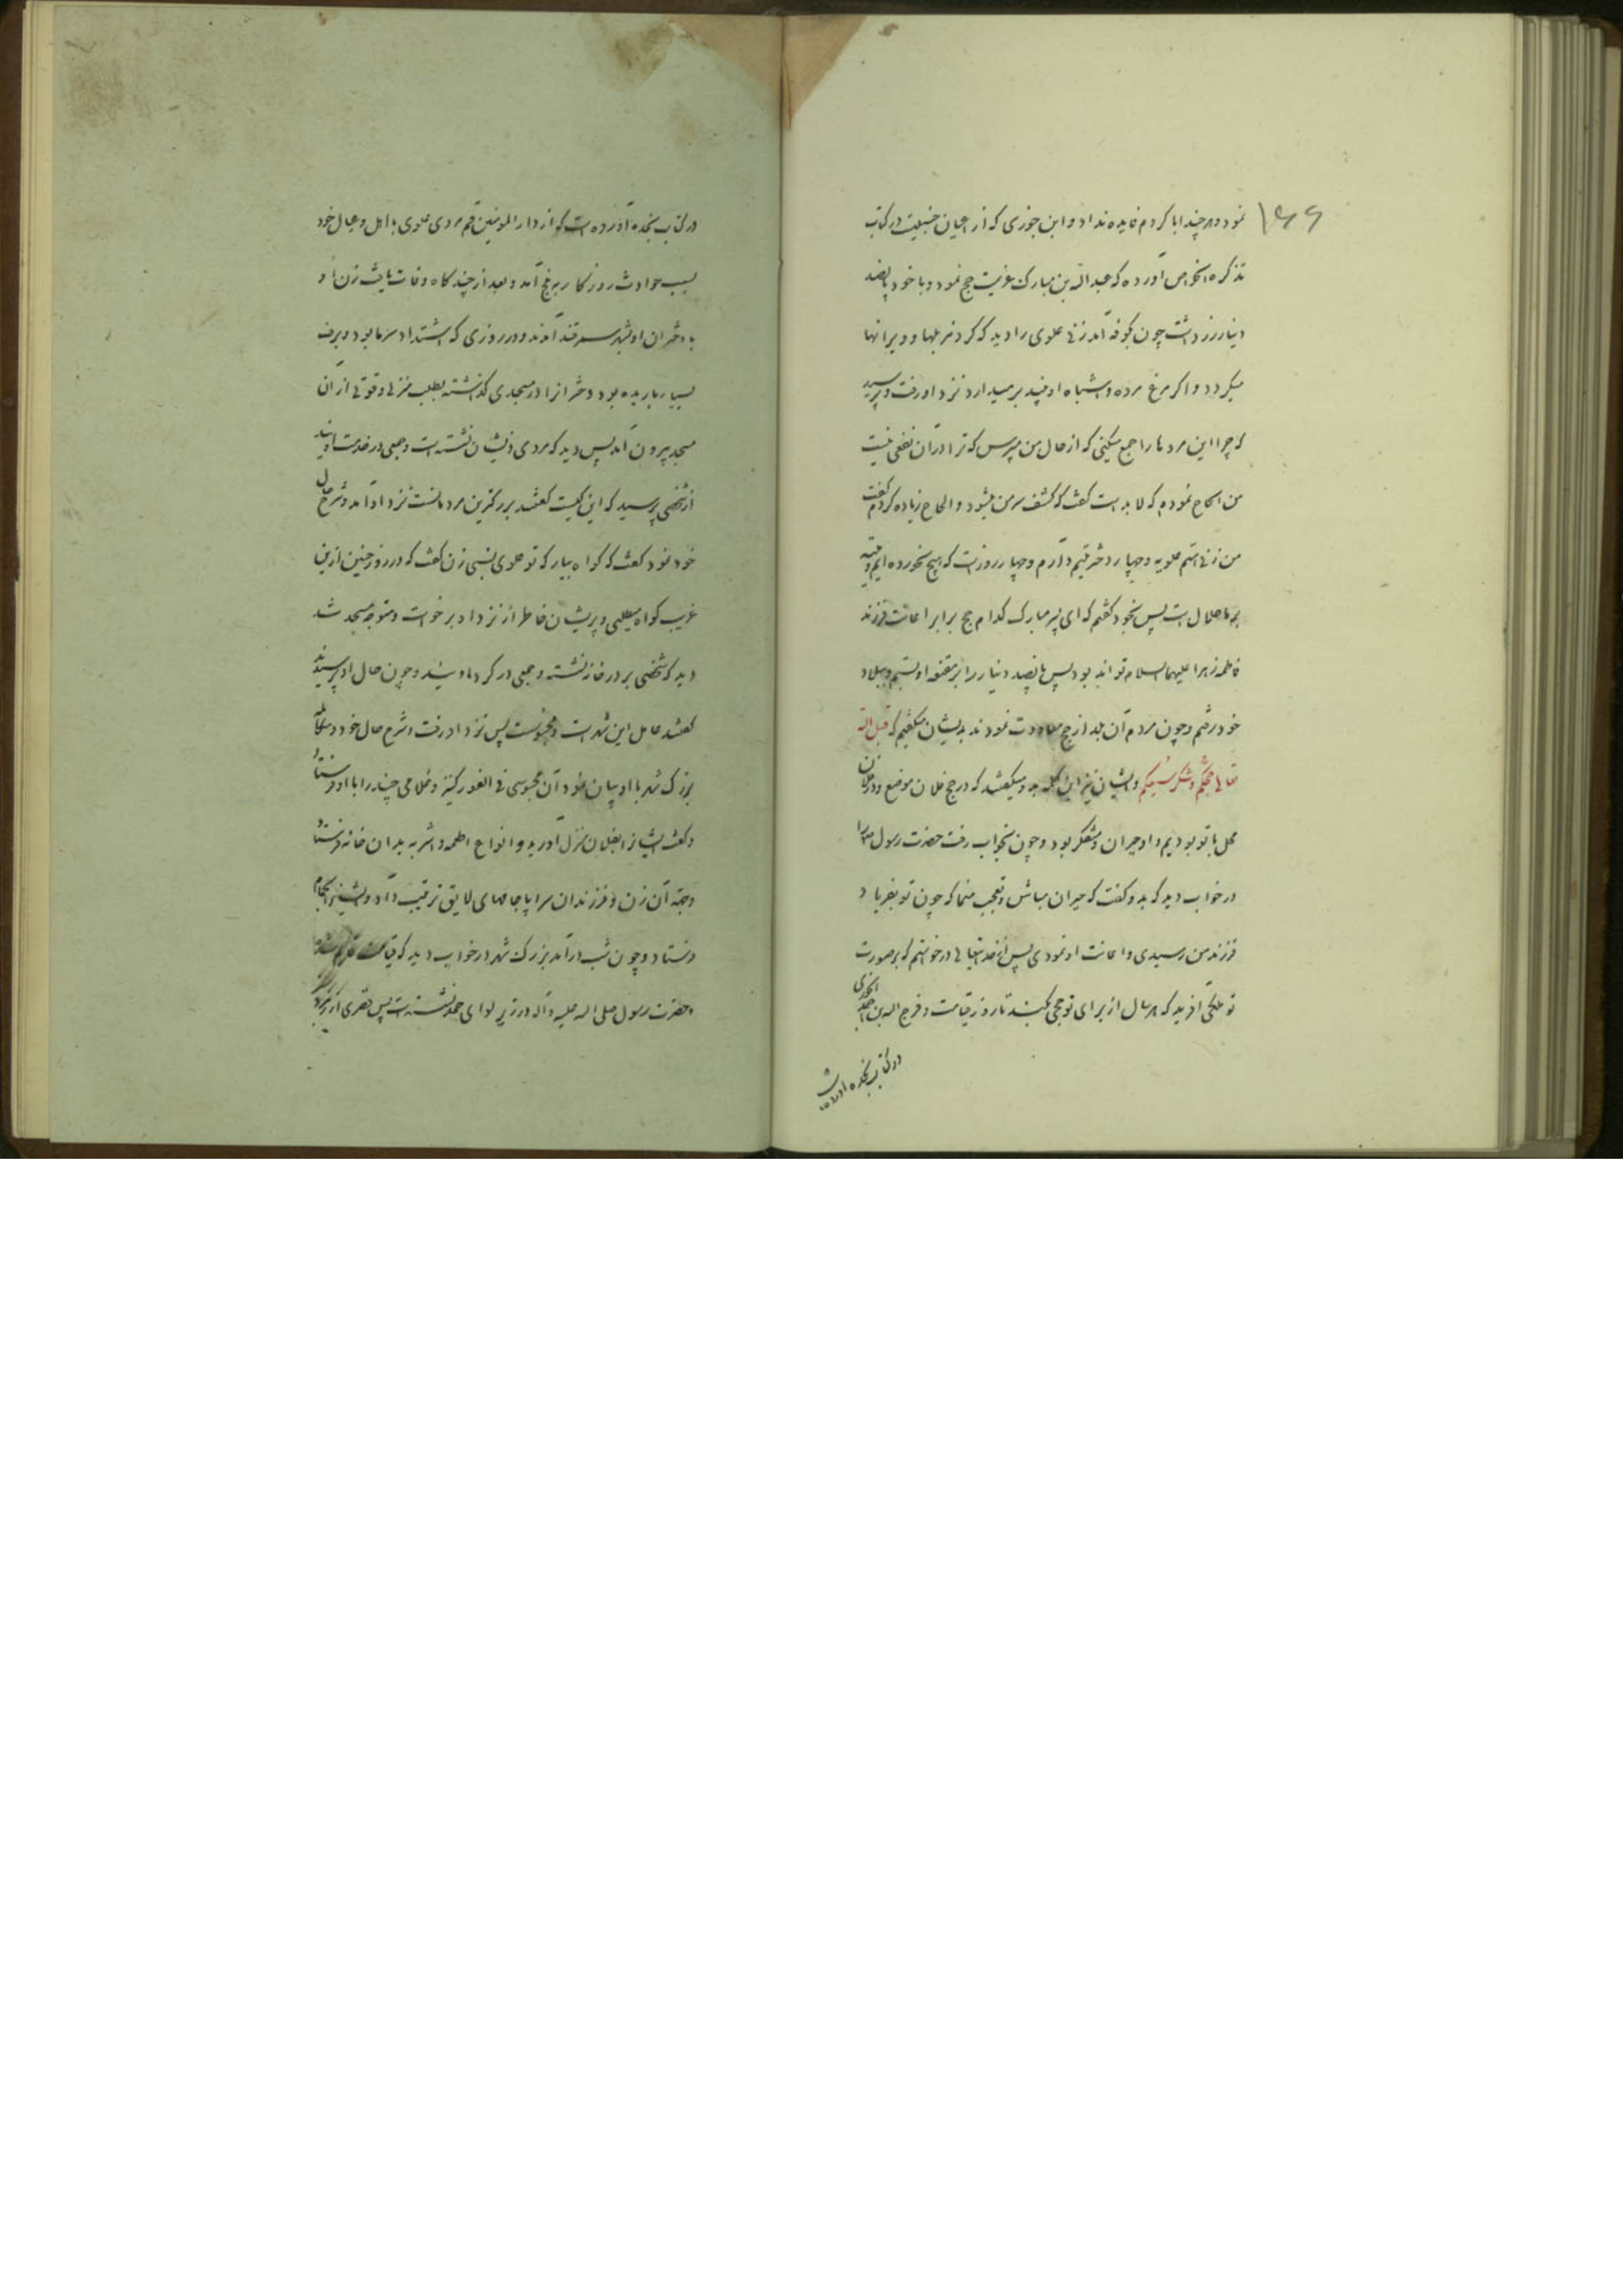 ۱۶۶
نمود و هر چند ابا کردم فایده نداد و ابن جوزی که از اعیان حنبلیت در کتاب
تذکره الخواص آورده که عبد اله بن مبارک عزیمت حج نمود و با خود پانصد
دینار زر داشت چون بکوفه آمد زنی علوی را دید که کرد مزبلها و ویرانها
میکردد و اکر مرغ مرده و اشباه او بیند بر میدارد نزد او رفت و پرسید
که چرا این مردها را جمع میکنی که از حال من مپرس که ترا در آن نفعی نیست
من الحاح نمودم که لابد است کفت که کشف سر من میشود و الحاح زیاده کردم کفت
من زنی هستم علویه و چهار دختر یتیم دارم و چهار روزست که هیچ نخورده ایم و میته
بر ما حلال است پس بخود کفتم که ای پسر مبارک کدام حج برابر اعانت فرزند
فاطمه زهرا علیهما السلام تواند بود پس پانصد دینار را بر مقنعه او بستم و ببلاد
خود رفتم و چون مردم آن بلد از حج معاودت نمودند بدیشان میکفتم که قبل اله
تعالی حجکم و شکر سعیکم و ایشان نیز این کلمه بدو میکفتند که در حج فلان موضع و در فلان
محل با تو بودیم و او حیران و متفکر بود و چون بخواب رفت حضرت رسول را
در خواب دید که بدو کفت که حیران مباش و تعجب منما که چون تو بفریاد
فرزند من رسیدی و اعانت او نمودی پس از خدایتعالی درخواستم که بر صورت
تو ملکی آفرید که هر سال از برای تو حجی کند تا روز قیامت و فرج اله بن احمد
در کتاب بخده آورده است
در کتاب بخده آورده است که از دار المومنین قم مردی علوی با اهل و عیال خود
بسبب حوادث روزکار ببلخ آمد و بعد از چند کاه وفات یافت زن او
با دختران او بشهر سمرقند آمدند و در روزی که اشتداد سرما بود و برف
بسیار باریده بود دخترانرا در مسجدی کذاشته بطلب منزلی و قوتی از آن
مسجد بیرون آمد پس دید که مردی ذیشان نشسته است و جمعی در خدمت اویند
از شخصی پرسید که این کیست کفتند بزرکترین مردمانست نزد او آمد و شرح حال
خود نمود کفت که کواه بیار که تو علوی نسبی زن کفت که در روز چنین از این
غریب کواه میطلبی و پریشان خاطر از نزد او برخواست و متوجه مسجد شد
دید که شخصی بر در خانه نشسته و جمعی در کرد او یند و چون حال او پرسید
کفتند عامل این شهر است و مجوسست پس نزد او رفت و شرح حال خود و مکالمه
بزرک شهر با او بیان نمود آن مجوسی فی الفور کنیز و غلامی چند را با او فرستاد
و کفت ایشانرا بفلان منزل آورید و انواع اطعمه و اشربه بدان خانه فرستاد
و بجهة آن زن و فرزندان سراپا جامهای لایق ترتیب داد و ایشانرا بحمام
فرستاد و چون شب درآمد بزرک شهر در خواب دید که قیامت قایم شده
و حضرت رسول صلی اله علیه و آله در زیر لوای حمد نشسته است پس قصری از زمرد